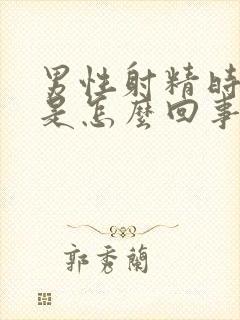 男性射精時
是怎麼回事
郭秀蘭